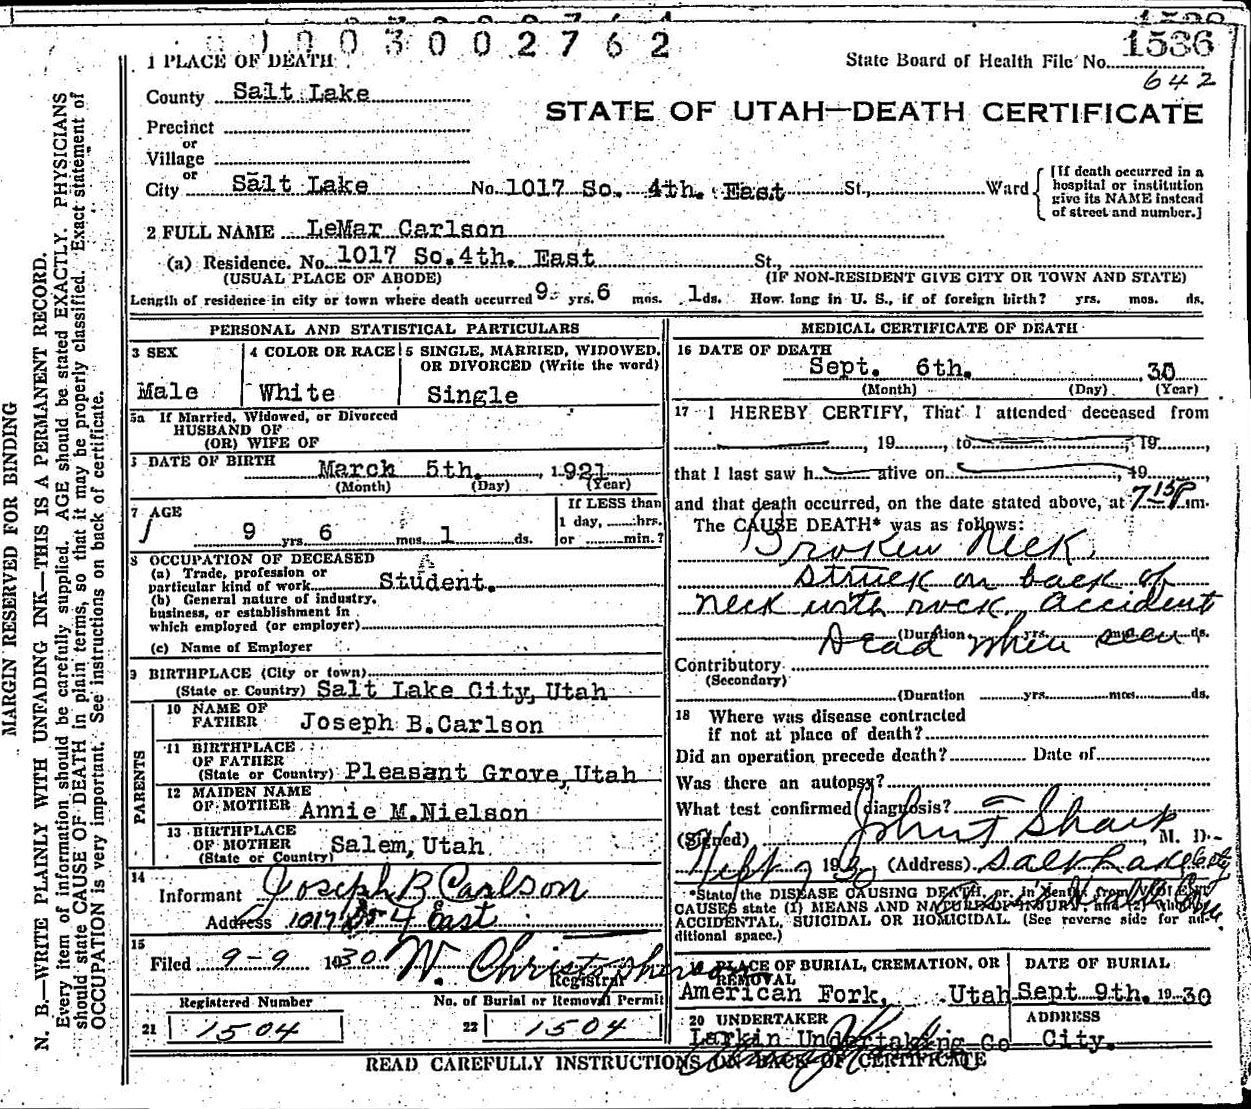 1003002762
1536
State Board of Health File No.
642
1 PLACE OF DEATH
County Salt Lake
STATE OF UTAH—DEATH CERTIFICATE
Precinct
or
Village
or
City Salt Lake No. 1017 So. 4th. East St., Ward
[If death occurred in a
hospital or institution
give its NAME instead
of street and number.]
2 FULL NAME LeMar Carlson
(a) Residence. No. 1017 So. 4th. East St.,
(USUAL PLACE OF ABODE) (IF NON-RESIDENT GIVE CITY OR TOWN AND STATE)
Length of residence in city or town where death occurred 9 yrs. 6 mos. 1 ds. How long in U. S., if of foreign birth? yrs. mos. ds.
MARGIN RESERVED FOR BINDING
N. B.—WRITE PLAINLY WITH UNFADING INK—THIS IS A PERMANENT RECORD.
Every item of information should be carefully supplied. AGE should be stated EXACTLY. PHYSICIANS
should state CAUSE OF DEATH in plain terms, so that it may be properly classified. Exact statement of
OCCUPATION is very important. See instructions on back of certificate.
PERSONAL AND STATISTICAL PARTICULARS
3 SEX
Male
4 COLOR OR RACE
White
5 SINGLE, MARRIED, WIDOWED,
OR DIVORCED (Write the word)
Single
5a If Married, Widowed, or Divorced
HUSBAND OF
(OR) WIFE OF
DATE OF BIRTH
March 5th. , 1921
(Month) (Day) (Year)
7 AGE
9 yrs. 6 mos. 1 ds.
If LESS than
1 day, hrs.
or min.?
8 OCCUPATION OF DECEASED
(a) Trade, profession or
particular kind of work Student.
(b) General nature of industry,
business, or establishment in
which employed (or employer)
(c) Name of Employer
9 BIRTHPLACE (City or town)
(State or Country) Salt Lake City, Utah
PARENTS
10 NAME OF
FATHER Joseph B. Carlson
11 BIRTHPLACE
OF FATHER
(State or Country) Pleasant Grove, Utah
12 MAIDEN NAME
OF MOTHER Annie M. Nielson
13 BIRTHPLACE
OF MOTHER
(State or Country) Salem, Utah
14
Informant Joseph B Carlson
Address 1017 So 4 East
15
Filed 9-9 1930 W. Christopherson
Registrar
Registered Number
21 1504
No. of Burial or Removal Permit
22 1504
MEDICAL CERTIFICATE OF DEATH
16 DATE OF DEATH
Sept. 6th. 30
(Month) (Day) (Year)
17 I HEREBY CERTIFY, That I attended deceased from
, 19 , to , 19 ,
that I last saw h alive on , 19
and that death occurred, on the date stated above, at 7 15 P m.
The CAUSE DEATH* was as follows:
Broken Neck
Struck on back of
neck with rock, Accident
(Duration yrs. mos. ds.
Dead when seen
Contributory
(Secondary)
(Duration yrs. mos. ds.
18 Where was disease contracted
if not at place of death?
Did an operation precede death? Date of
Was there an autopsy?
What test confirmed diagnosis?
(Signed) John F Sharp , M. D.
Sept 7 1930 (Address) Salt Lake City
*State the DISEASE CAUSING DEATH, or, in deaths from VIOLENT
CAUSES state (1) MEANS AND NATURE OF INJURY
ACCIDENTAL, SUICIDAL OR HOMICIDAL. (See reverse side for ad-
ditional space.)
19 PLACE OF BURIAL, CREMATION, OR
REMOVAL
American Fork, Utah
DATE OF BURIAL
Sept 9th. 1930
20 UNDERTAKER
Larkin Undertaking Co
ADDRESS
City.
READ CAREFULLY INSTRUCTIONS ON BACK OF CERTIFICATE